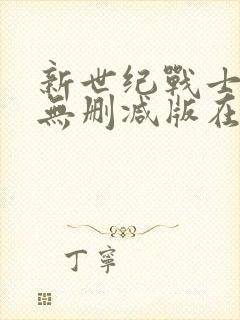 新世纪戰士
無删减版在
丁寧